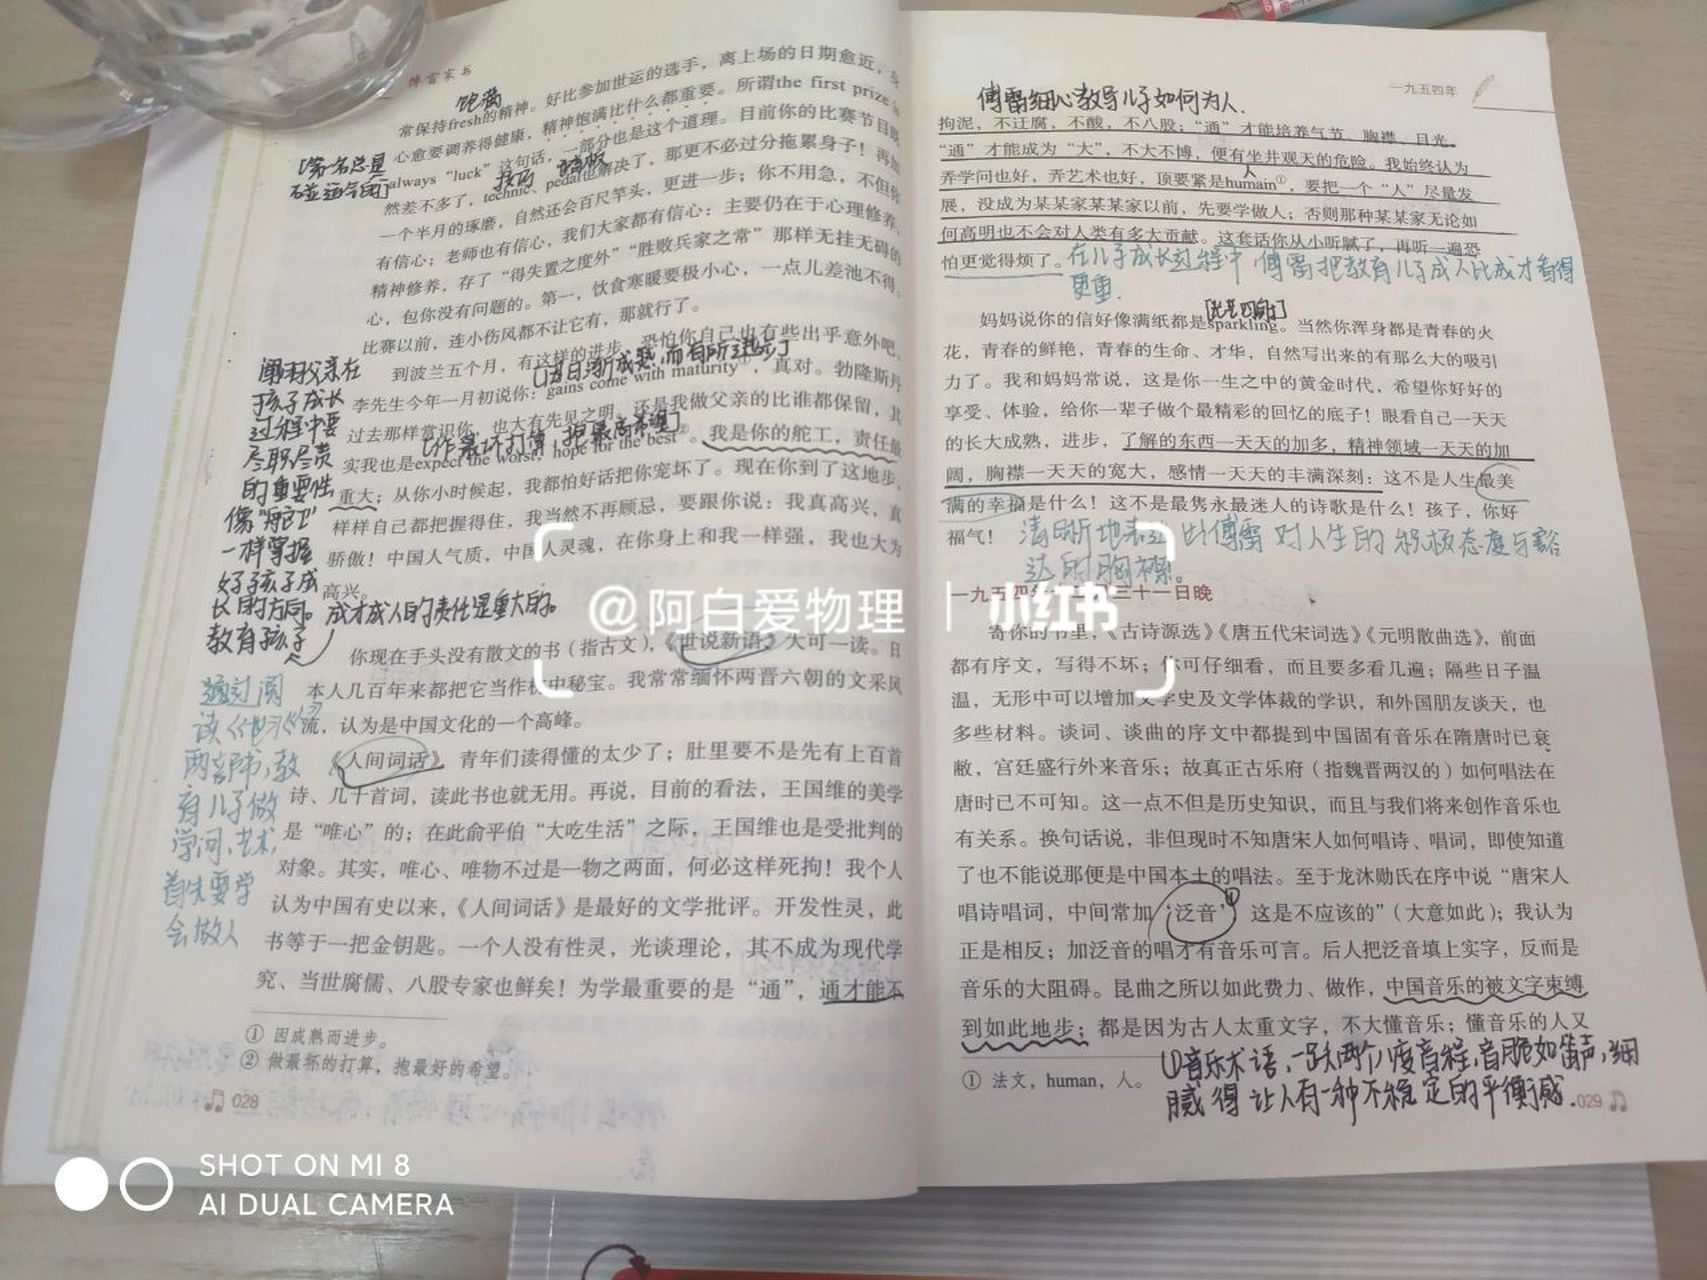 傅雷家书
饱满
常保持fresh的精神。好比参加世运的选手，离上场的日期愈近，身
心愈要调养得健康，精神饱满比什么都重要。所谓the first prize is
[第一名总是
碰运气的]
always “luck” 这句话，一部分也是这个道理。目前你的比赛节目既
技巧 踏板
然差不多了，technic、pedal也解决了，那更不必过分拖累身子！再加
一个半月的琢磨，自然还会百尺竿头，更进一步；你不用急，不但你
有信心；老师也有信心，我们大家都有信心：主要仍在于心理修养，
精神修养，存了“得失置之度外”“胜败兵家之常”那样无挂无碍的
心，包你没有问题的。第一，饮食寒暖要极小心，一点儿差池不得。
比赛以前，连小伤风都不让它有，那就行了。
到波兰五个月，有这样的进步，恐怕你自己也有些出乎意外吧。
[因日渐成熟，而有所进步]
李先生今年一月初说你：gains come with maturity①，真对。勃隆斯丹
过去那样赏识你，也大有先见之明。还是我做父亲的比谁都保留，其
[作最坏打算，抱最高希望]
实我也是expect the worst，hope for the best②。我是你的舵工，责任最
重大；从你小时候起，我都怕好话把你宠坏了。现在你到了这地步，
样样自己都把握得住，我当然不再顾忌，要跟你说：我真高兴，真
骄傲！中国人气质，中国人灵魂，在你身上和我一样强，我也大为
高兴。
阐明父亲在
孩子成长
过程中要
尽职尽责
的重要性
像“舵工”
一样掌握
好孩子成
长的方向。
教育孩子
成才成人的责任是重大的。
你现在手头没有散文的书（指古文），《世说新语》大可一读。日
本人几百年来都把它当作枕中秘宝。我常常缅怀两晋六朝的文采风
流，认为是中国文化的一个高峰。
《人间词话》青年们读得懂的太少了；肚里要不是先有上百首
诗、几十首词，读此书也就无用。再说，目前的看法，王国维的美学
是“唯心”的；在此俞平伯“大吃生活”之际，王国维也是受批判的
对象。其实，唯心、唯物不过是一物之两面，何必这样死拘！我个人
认为中国有史以来，《人间词话》是最好的文学批评。开发性灵，此
书等于一把金钥匙。一个人没有性灵，光谈理论，其不成为现代学
究、当世腐儒、八股专家也鲜矣！为学最重要的是“通”，通才能不
通过阅
读《世》《人》
两部书，教
育儿子做
学问、艺术，
首先要学
会做人
① 因成熟而进步。
② 做最坏的打算，抱最好的希望。
028
一九五四年
傅雷细心教导儿子如何为人.
拘泥，不迂腐，不酸，不八股；“通”才能培养气节、胸襟、目光。
“通”才能成为“大”，不大不博，便有坐井观天的危险。我始终认为
人
弄学问也好，弄艺术也好，顶要紧是humain①，要把一个“人”尽量发
展，没成为某某家某某家以前，先要学做人；否则那种某某家无论如
何高明也不会对人类有多大贡献。这套话你从小听腻了，再听一遍恐
怕更觉得烦了。
在儿子成长过程中 傅雷把教育儿子成人比成才看得
更重.
[光芒四射]
妈妈说你的信好像满纸都是sparkling。当然你浑身都是青春的火
花，青春的鲜艳，青春的生命、才华，自然写出来的有那么大的吸引
力了。我和妈妈常说，这是你一生之中的黄金时代，希望你好好的
享受、体验，给你一辈子做个最精彩的回忆的底子！眼看自己一天天
的长大成熟，进步，了解的东西一天天的加多，精神领域一天天的加
阔，胸襟一天天的宽大，感情一天天的丰满深刻：这不是人生最美
满的幸福是什么！这不是最隽永最迷人的诗歌是什么！孩子，你好
福气！
清晰地表达出傅雷对人生的积极态度与豁
达的胸襟。
一九五四年十二月三十一日晚
寄你的书里，《古诗源选》《唐五代宋词选》《元明散曲选》，前面
都有序文，写得不坏；你可仔细看，而且要多看几遍；隔些日子温
温，无形中可以增加文学史及文学体裁的学识，和外国朋友谈天，也
多些材料。谈词、谈曲的序文中都提到中国固有音乐在隋唐时已衰
敝，宫廷盛行外来音乐；故真正古乐府（指魏晋两汉的）如何唱法在
唐时已不可知。这一点不但是历史知识，而且与我们将来创作音乐也
有关系。换句话说，非但现时不知唐宋人如何唱诗、唱词，即使知道
了也不能说那便是中国本土的唱法。至于龙沐勋氏在序中说“唐宋人
唱诗唱词，中间常加‘泛音’①，这是不应该的”（大意如此）；我认为
正是相反；加泛音的唱才有音乐可言。后人把泛音填上实字，反而是
音乐的大阻碍。昆曲之所以如此费力、做作，中国音乐的被文字束缚
到如此地步；都是因为古人太重文字，不大懂音乐；懂音乐的人又
① 法文，human，人。
①音乐术语，一跃两个八度音程，音脆如笛声，细
腻得让人有一种不稳定的平衡感.
029
@阿白爱物理 | 小红书
SHOT ON MI 8
AI DUAL CAMERA